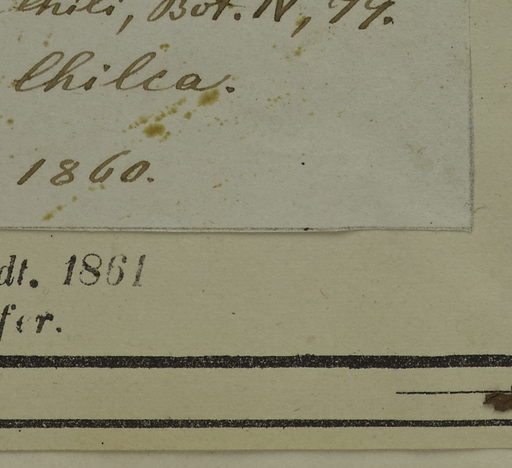 Chili, Bot. IV, 79.
Chilca.
1860.
dt. 1861
fer.